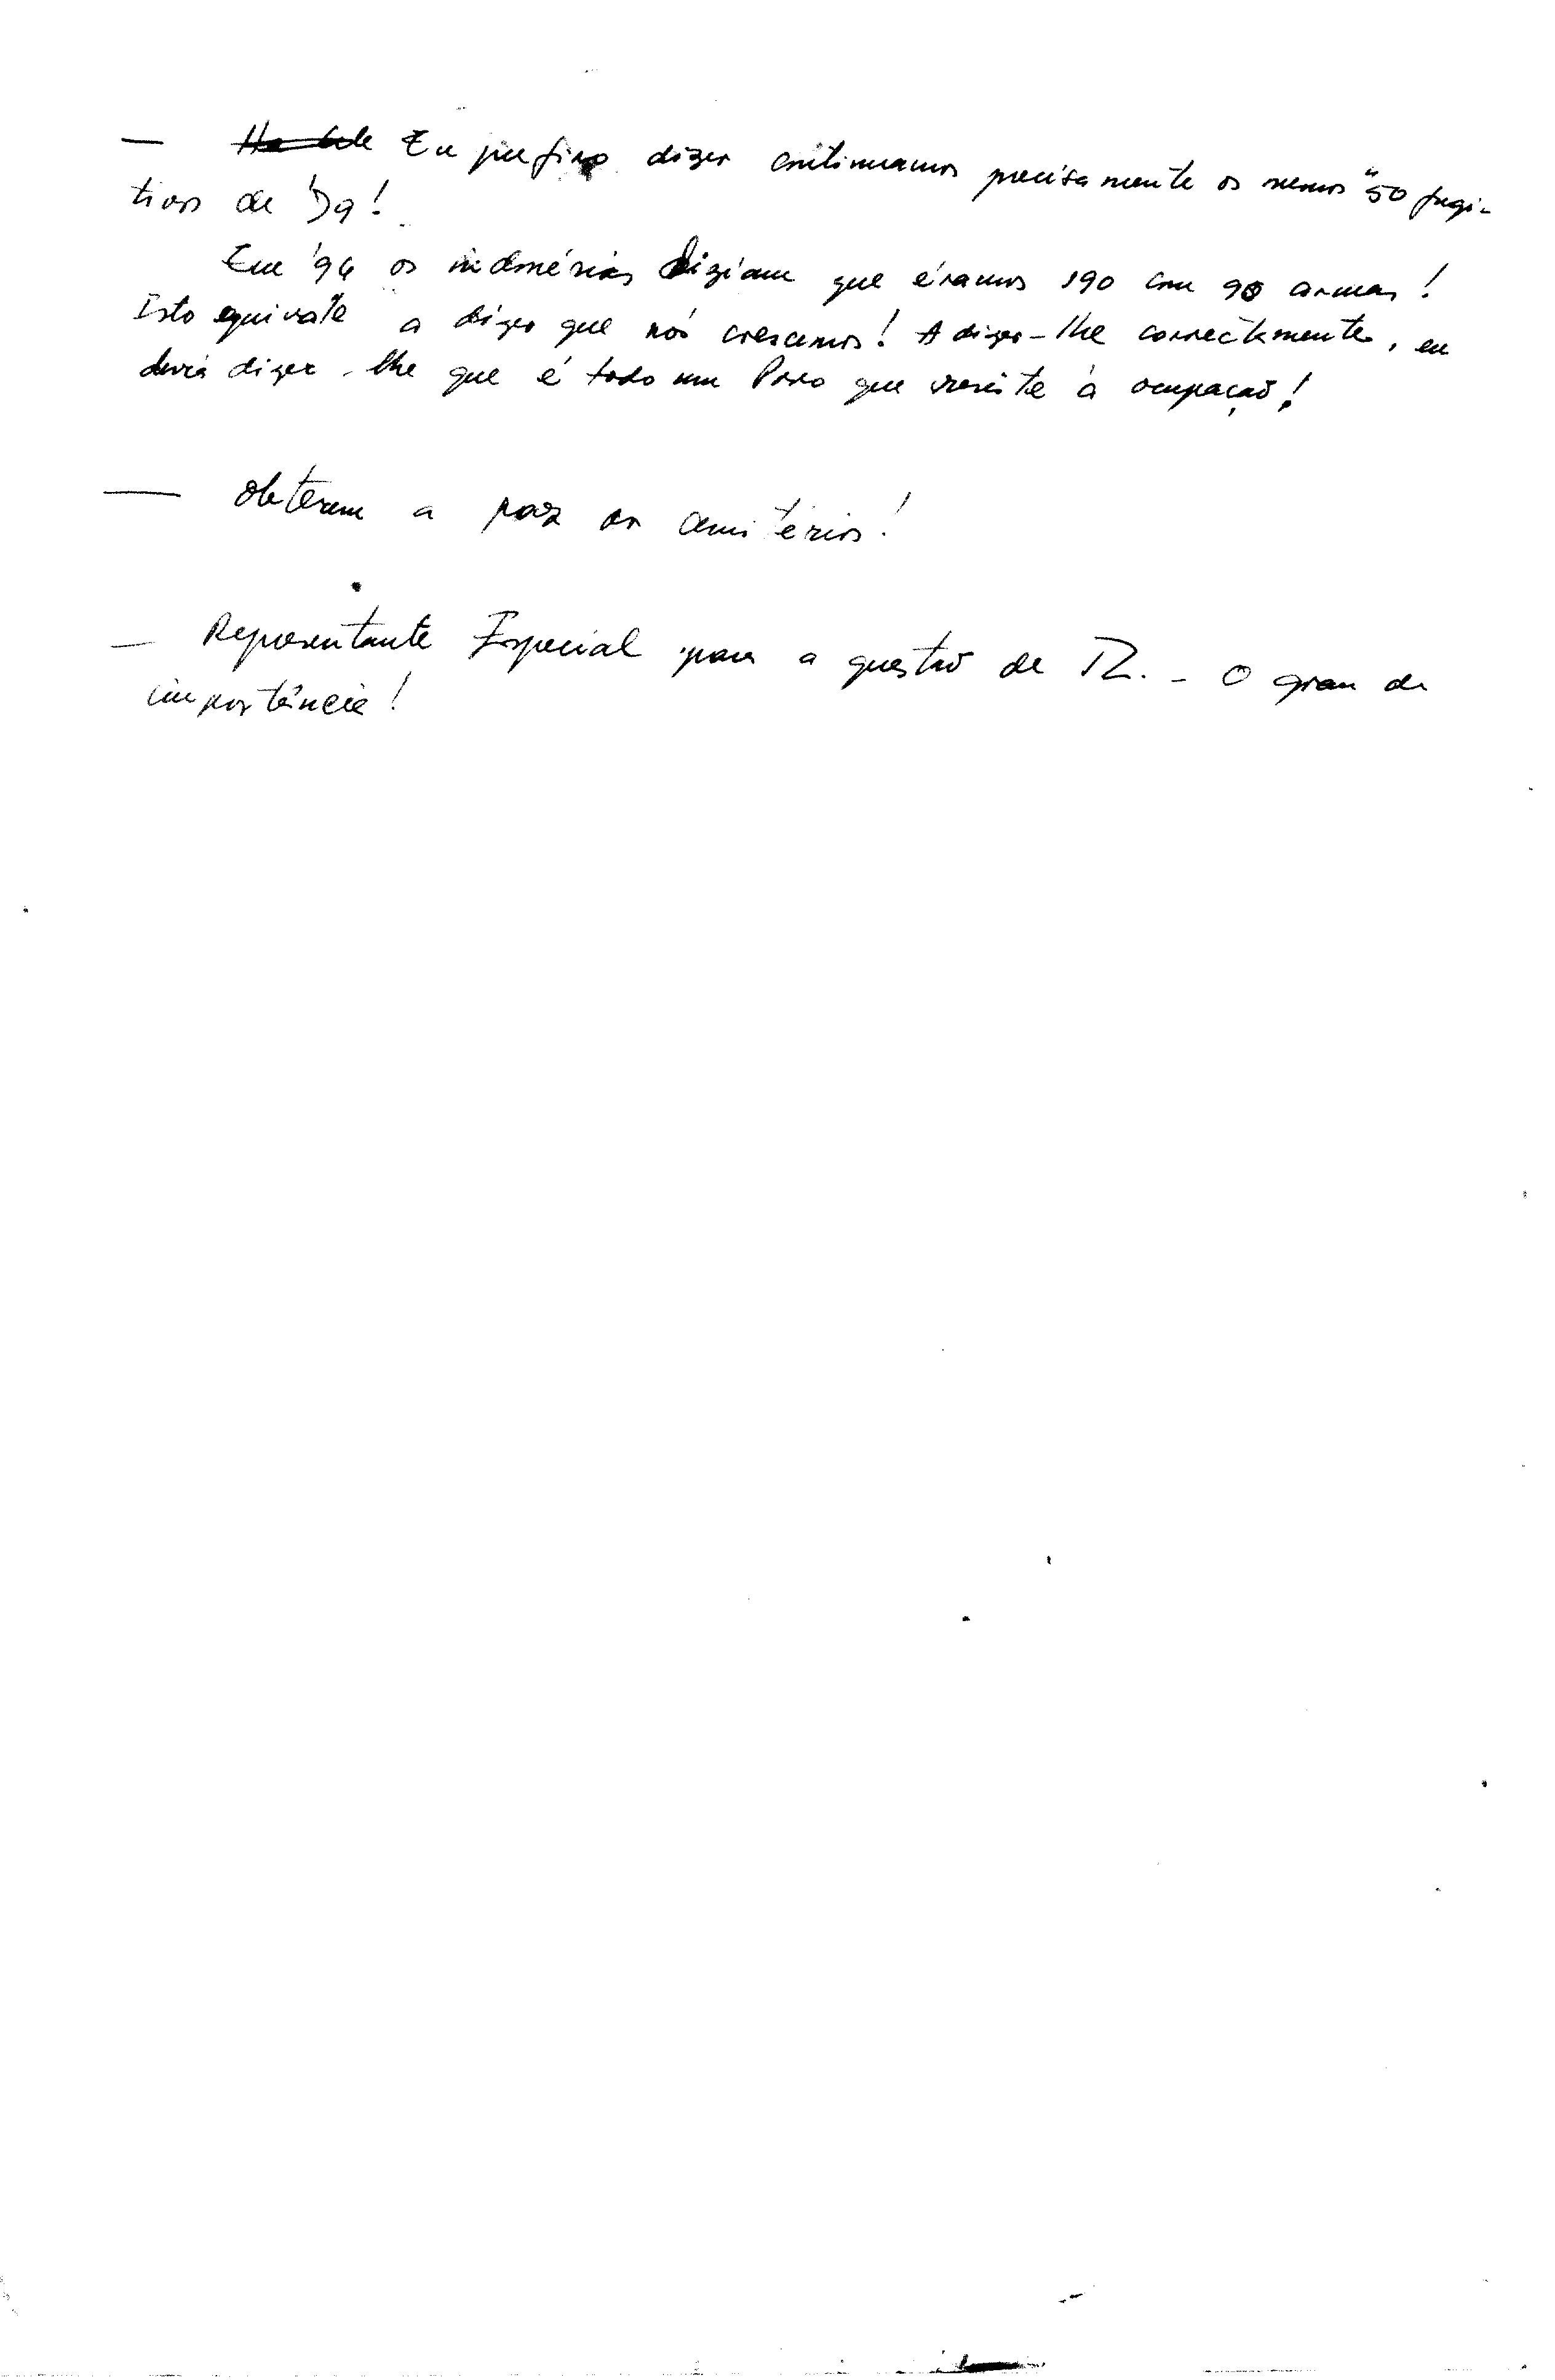 — Eu prefiro dizer continuamos precisamente os mesmos "50 fugi-
tivos de
Em '94 os indonésios diziam que éramos 190 com 90 armas!
Isto equivale a dizer que nós crescemos! A dizer-lhe correctamente, eu
devia dizer-lhe que é todo um Povo que resiste à ocupação!
— Obterem a paz os cemitérios!
— Representante Especial para a questão de TL. - O grau de
importância!